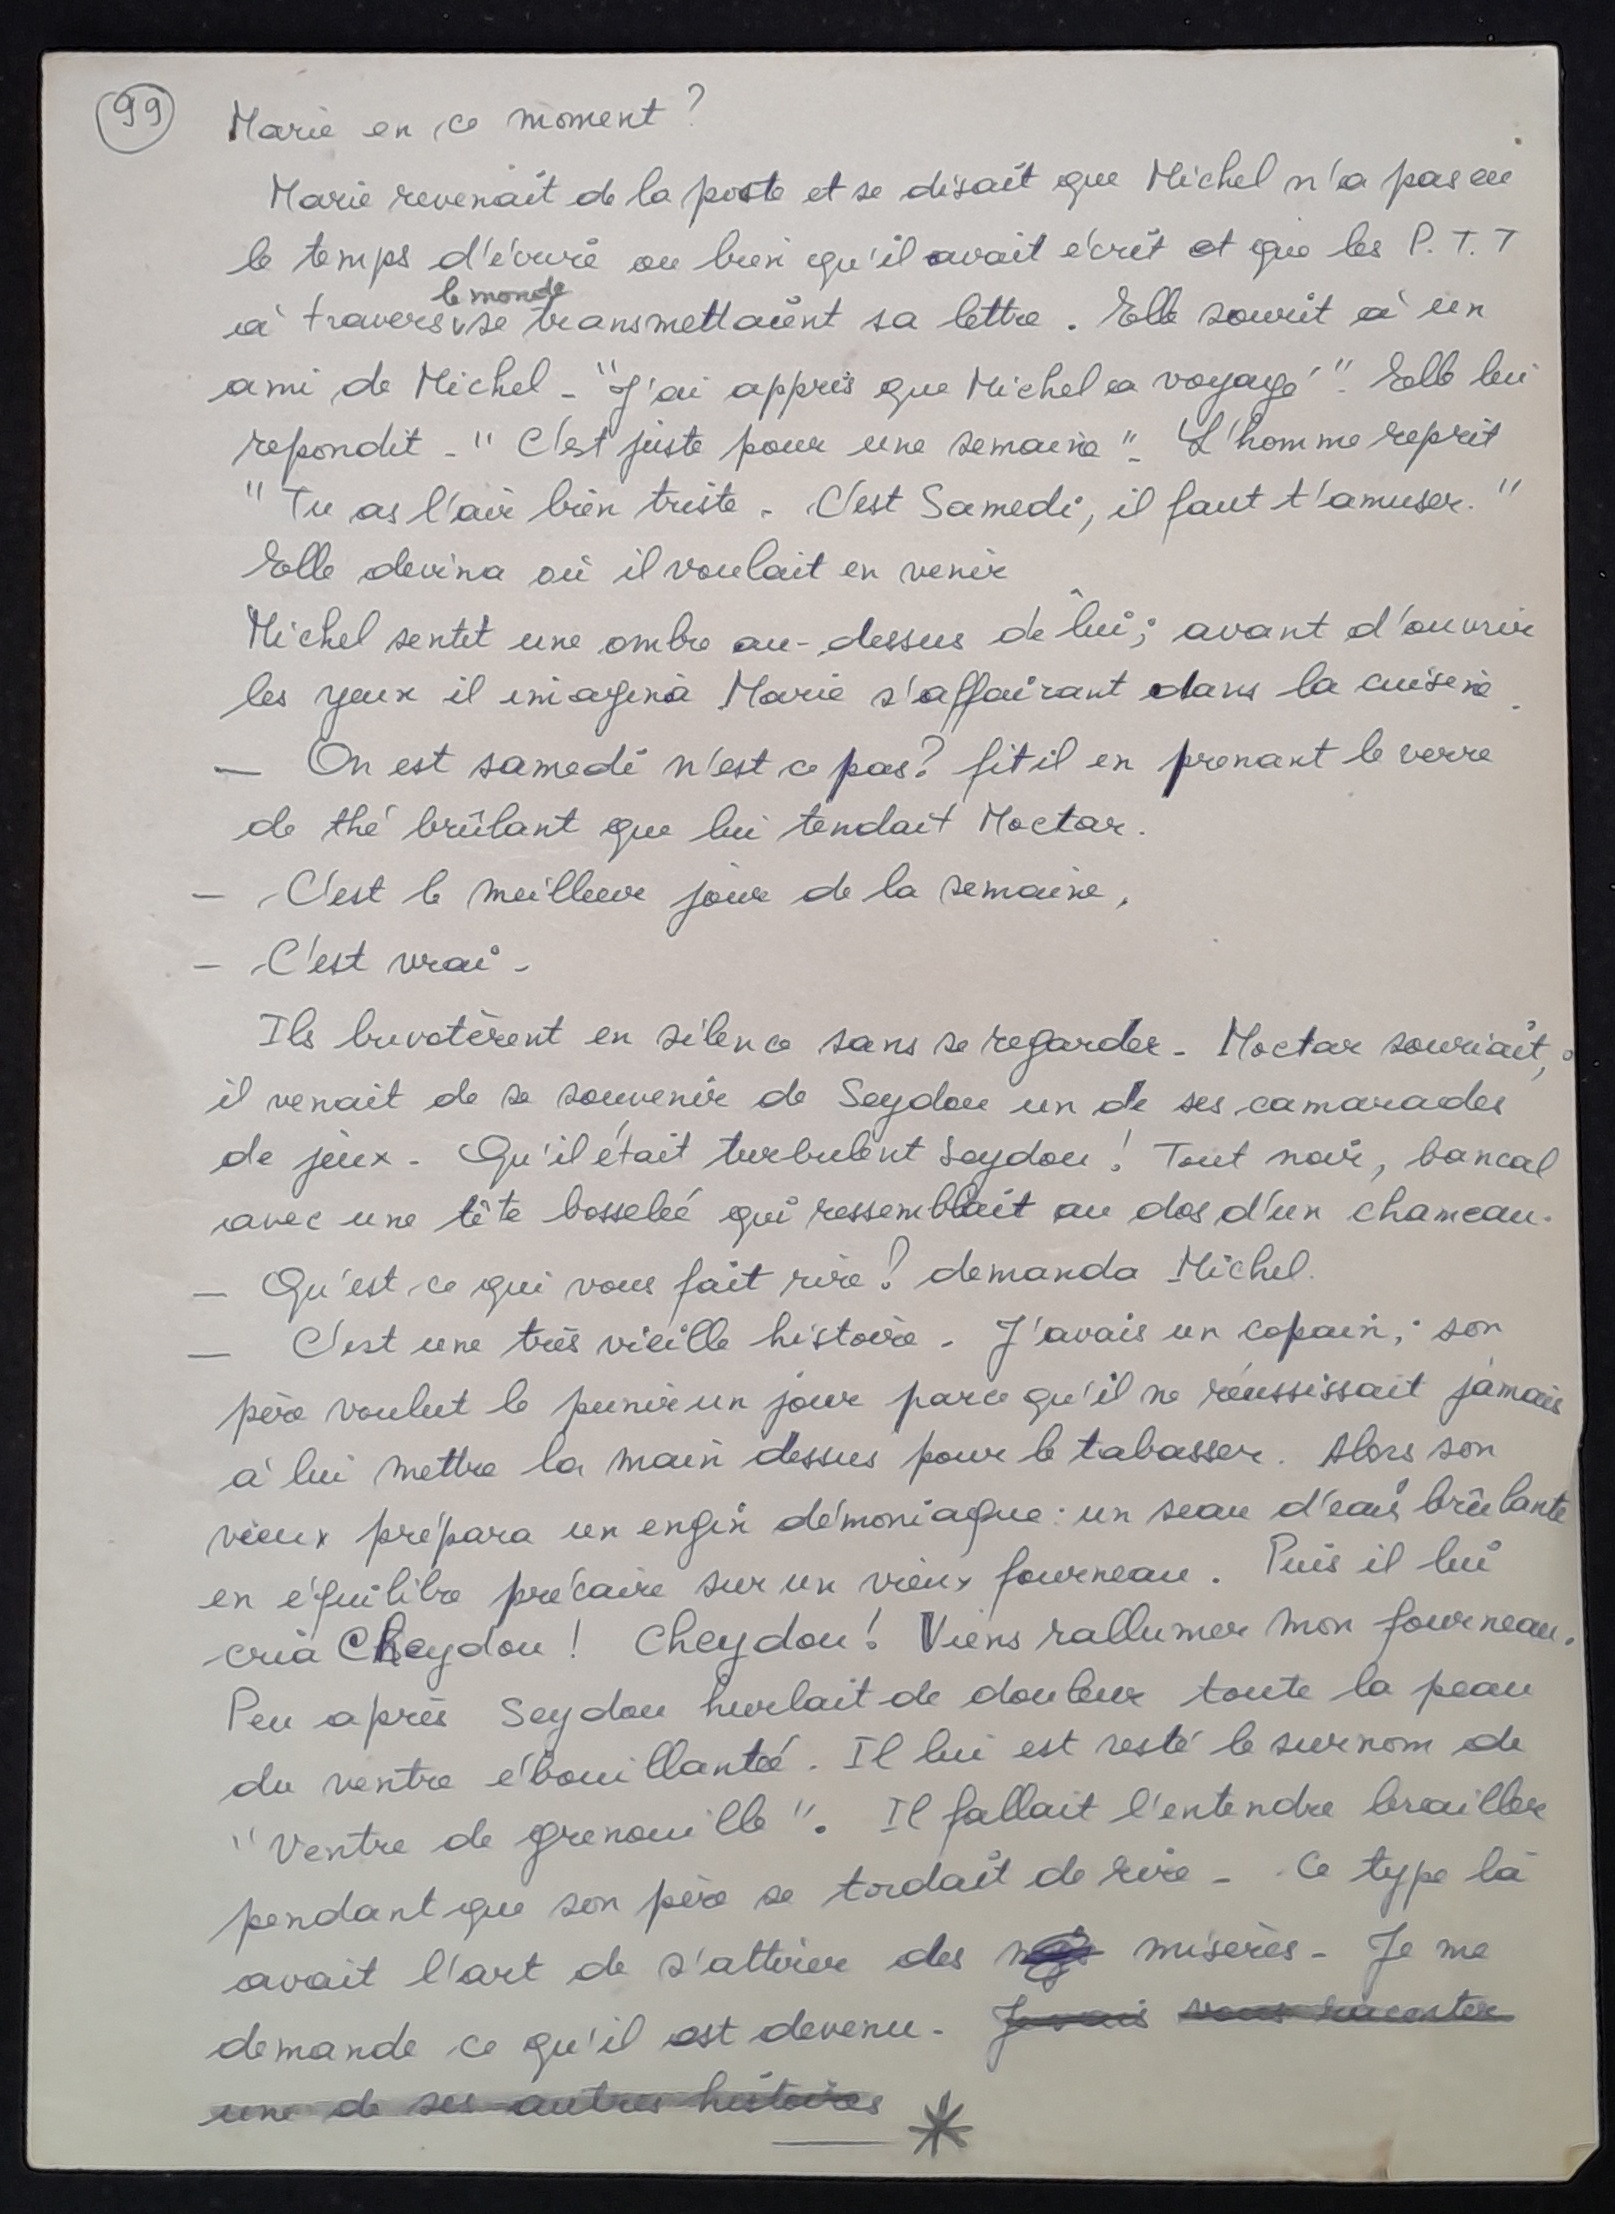 99 Marie en ce moment ?
Marie revenait de la poste et se disait que Michel n'a pas eu
le temps d'écrire ou bien qu'il avait écrit et que les P.T.T
à travers le monde se transmettaient sa lettre. Elle sourit à un
ami de Michel - "J'ai appris que Michel a voyagé". Elle lui
repondit - " C'est juste pour une semaine" - L'homme reprit
" Tu as l'air bien triste. C'est Samedi, il faut t'amuser. "
Elle devina où il voulait en venir
Michel sentit une ombre au-dessus de lui ; avant d'ouvrir
les yeux il imagina Marie s'affairant dans la cuisine.
— On est samedi n'est ce pas ? fit il en prenant le verre
de thé brûlant que lui tendait Moctar.
— C'est le meilleur jour de la semaine,
— C'est vrai -
Ils buvotèrent en silence sans se regarder - Moctar souriait ;
il venait de se souvenir de Seydou un de ses camarades
de jeux - Qu'il était turbulent Seydou ! Tout noir, bancal
avec une tête bosselée qui ressemblait au dos d'un chameau.
— Qu'est ce qui vous fait rire ? demanda Michel.
— C'est une très vieille histoire - J'avais un copain ; son
père voulut le punir un jour parce qu'il ne réussissait jamais
à lui mettre la main dessus pour le tabasser. Alors son
vieux prépara un engin démoniaque : un seau d'eau brûlante
en équilibre précaire sur un vieux fourneau. Puis il lui
cria Cheydou ! Cheydou ! Viens rallumer mon fourneau.
Peu après Seydou hurlait de douleur toute la peau
du ventre ébouillantée. Il lui est resté le surnom de
"Ventre de grenouille". Il fallait l'entendre brailler
pendant que son père se tordait de rire - Ce type là
avait l'art de s'attirer des misères - Je me
demande ce qu'il est devenu - Je vais vous raconter
une de ses autres histoires *